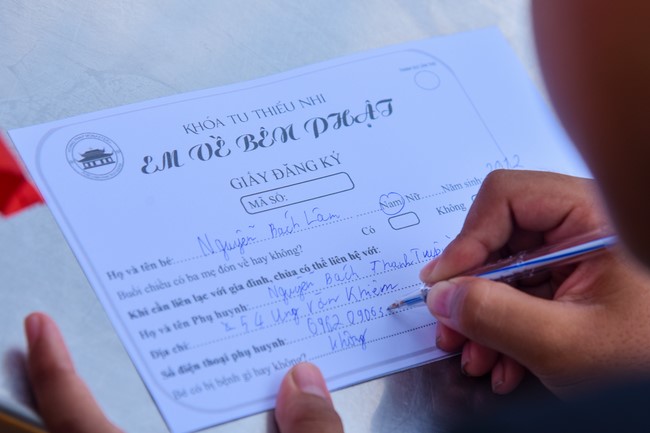 KHÓA TU THIẾU NHI
EM VỀ BÊN PHẬT
GIẤY ĐĂNG KÝ
MÃ SỐ:
Họ và tên bé: Nguyễn Bách Lâm Nam Nữ Năm sinh: 2012
Buổi chiều có ba mẹ đón về hay không? Có Không
Khi cần liên lạc với gia đình, chùa có thể liên hệ với:
Họ và tên Phụ huynh: Nguyễn Bách Thanh
Địa chỉ: 254 Ung Văn Khiêm
Số điện thoại phụ huynh: 0902 0906
Bé có bị bệnh gì hay không? không